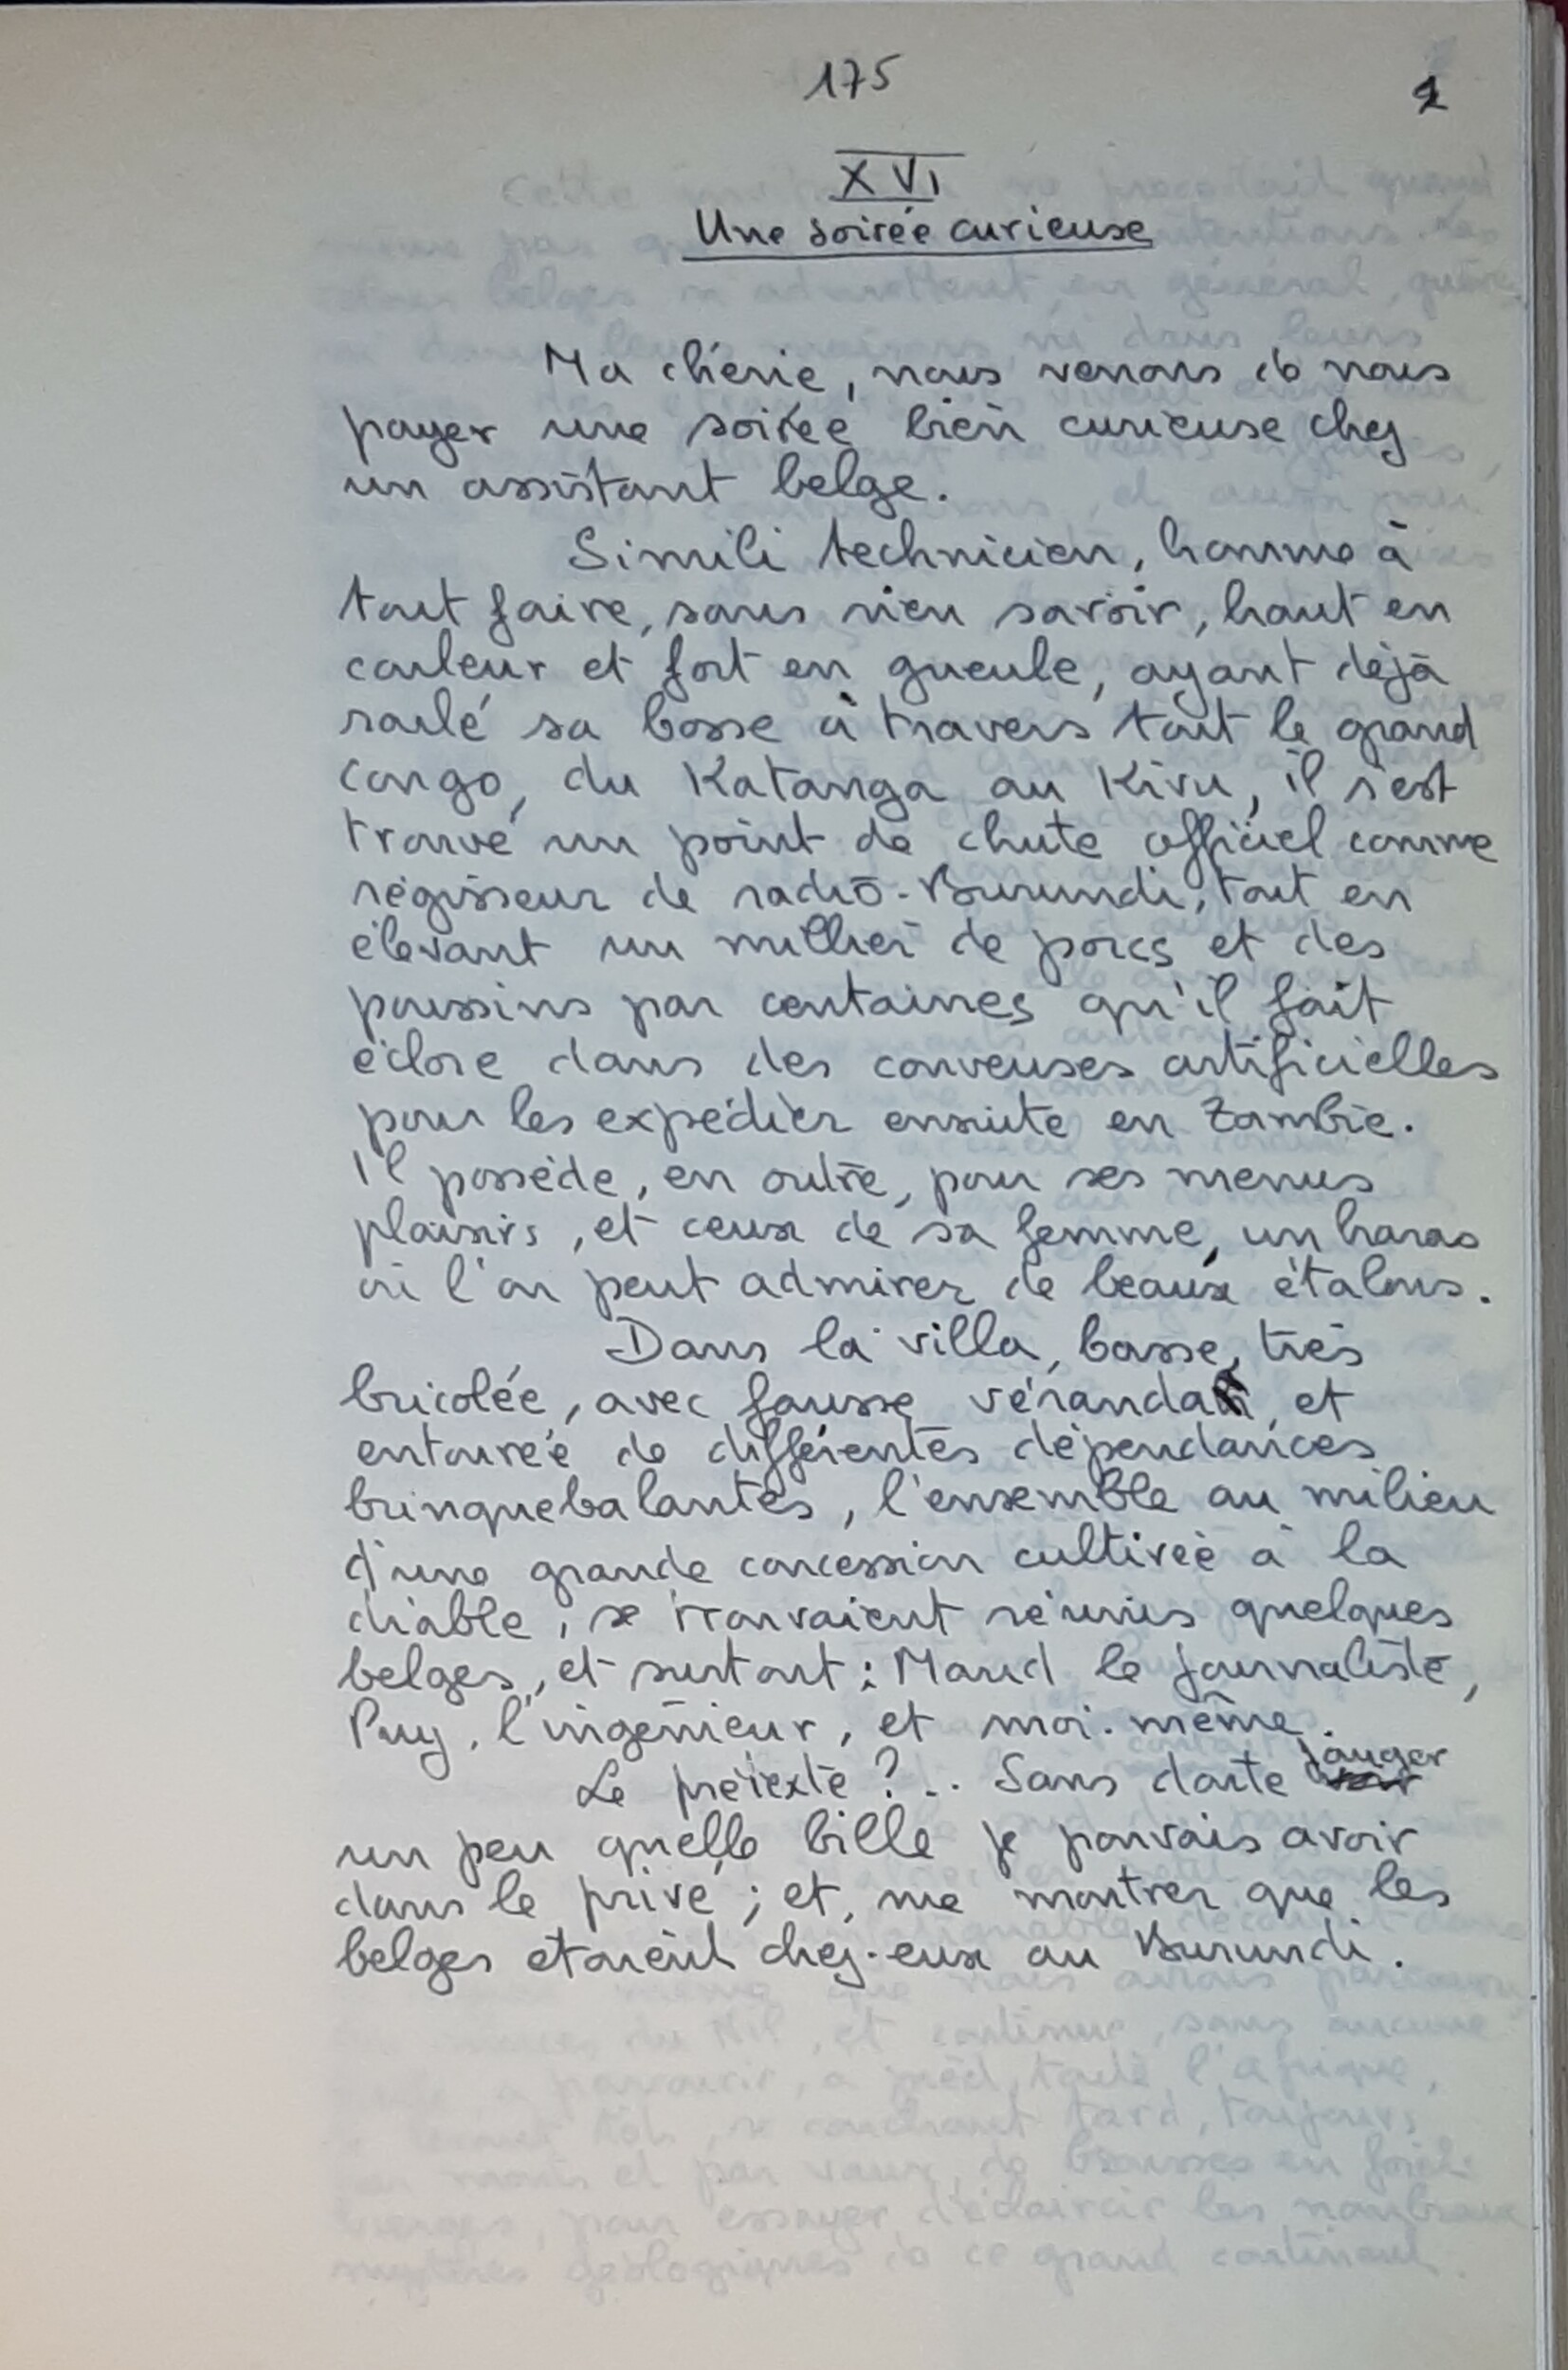 175
2
XVI
Une soirée curieuse
Ma chérie, nous venons de nous
payer une soirée bien curieuse chez
un assistant belge.
Simili technicien, homme à
tout faire, sans rien savoir, haut en
couleur et fort en gueule, ayant déjà
roulé sa bosse à travers tout le grand
Congo, du Katanga au Kivu, il s'est
trouvé un point de chute officiel comme
régisseur de radio-Burundi, tout en
élevant un millier de porcs et des
poussins par centaines qu'il fait
éclore dans des couveuses artificielles
pour les expédier ensuite en Zambie.
Il possède, en outre, pour ses menus
plaisirs, et ceux de sa femme, un haras
où l'on peut admirer de beaux étalons.
Dans la villa, basse, très
bricolée, avec fausse véranda, et
entourée de différentes dépendances
brinquebalantes, l'ensemble au milieu
d'une grande concession cultivée à la
diable, se trouvaient réunis quelques
belges, et surtout : Maud le journaliste,
Puy, l'ingénieur, et moi-même.
Le prétexte ?.. Sans doute jauger
un peu quelle bille je pouvais avoir
dans le privé ; et, me montrer que les
belges étaient chez-eux au Burundi.